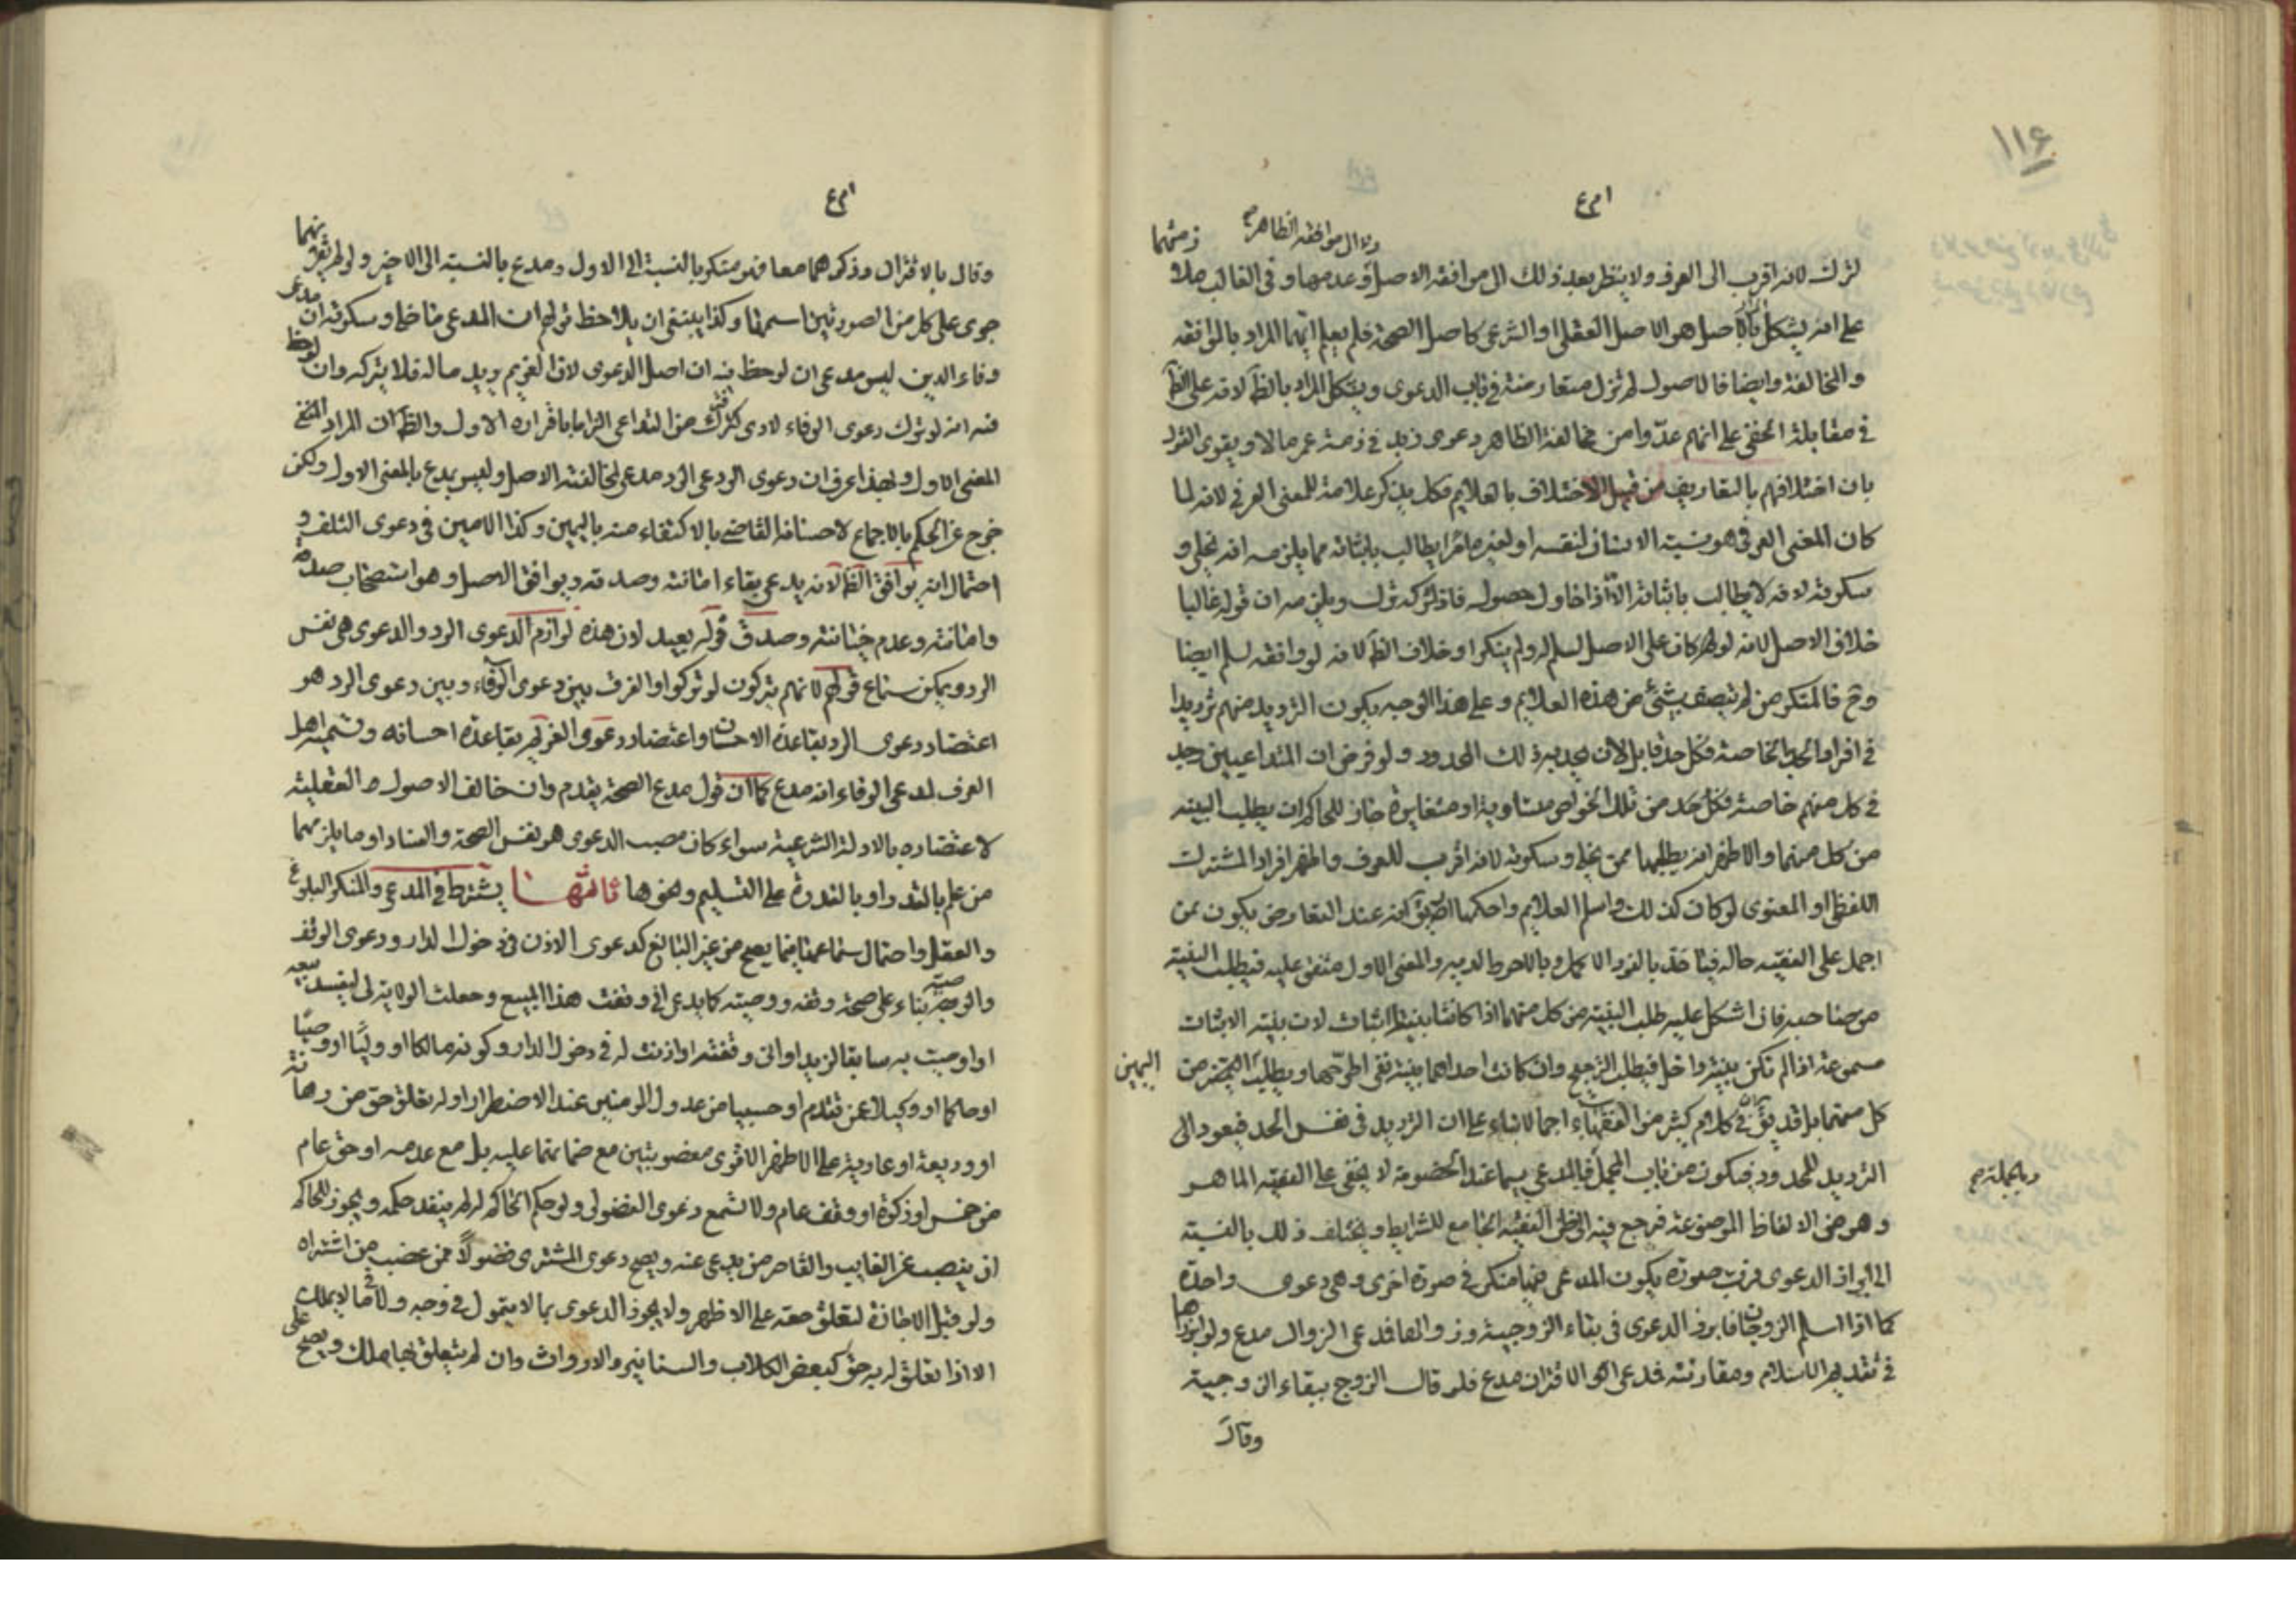 ١١۶
وال موافقة الظاهر
لترك لانه اقرب الى العرف ولا ينظر بعد ذلك الى موافقة الاصل وعدمها وفي الغالب
على انه يشكل بان الاصل هو الاصل العقلي او الشرعي كاصل الصحة فلم يعلم ايهما المراد بالموافقة
والمخالفة وايضا فالاصول لم تزل متعارضة في باب الدعوى ويشكل المراد بالظ لانه على الظ
في مقابلة الخفي على انهم عدوا من مخالفة الظاهر دعوى زيد في ذمة عمر مالا ويقوى القول
بان اختلافهم بالتعاريف من قبيل الاختلاف بالعلايم فكل يذكر علامة للمعنى العرفي لانه لما
كان المعنى العرفي هو نسبة الانسان لنفسه او لغيره امرا يطالب باثباته مما يلزمه انه يخلى و
سكوته لانه لا يطالب باثباته الا اذا حاول حصوله فاذا تركه ترك ويلزمه ان قوله غالبا
خلاف الاصل لانه لو كان على الاصل لسلم له ولم ينكر او خلاف الظ لانه لو وافقه لسلم ايضا
وح فالمنكر من لم يتصف بشئ من هذه العلايم وعلى هذا الوجه يكون الترديد منهم ترديدا
في افراد الحد بالخاصة فكل حد قابل لان يحد به ذلك المحدود ولو فرض ان المتداعيين وجد
في كل منهم خاصة فكل حد من تلك الخواص متساوية او متغايرة جاز للحاكم ان يطلب البينه
من كل منهما والاظهر انه يطلبها ممن يخلى وسكوته لانه اقرب للعرف واظهر افراد المشترك
اللفظي او المعنوي لو كان كذلك واسلم العلايم واحكمها انه عند التعارض يكون ممن
اجمل على الفقيه حاله فياخذ بالفرد الاكمل وبالاحوط لديه والمعنى الاول متفق عليه فيطلب البينة
من صاحبه فان اشكل عليه طلب البينة من كل منهما اذا كانتا بينة اثبات لان بينة الاثبات
مسموعة اذا لم تكن بينة داخل فيطلب الترجيح وان كانت احداهما بينة نفي اطرحها ويطلب من
اليمين
كل منهما بل قد يق في كلام كثير من الفقهاء اجمالا بناء على ان الترديد في نفس الحد فيعود الى
الترديد للمحدود فيكون من باب المجمل فالمدعي سيما عند الخصومة لا يخفى على الفقيه الماهر
وبالجملة صح
وهو من الالفاظ الموضوعة فرجع فيه الى ظن الفقيه الجامع للشرايط ويختلف ذلك بالنسبة
الى ابراز الدعوى فرب صورة يكون المدعي فيها منكر في صورة اخرى وهي دعوى واحدة
كما اذا اسلم الزوجان فابرز الدعوى في بقاء الزوجية وزوالها فمدعي الزوال مدع ولو ابرزاها
في تقديم الاسلام ومقارنته فمدعي الاقتران مدع فلو قال الزوج ببقاء الزوجية
وقال
وقال بالاقتران وذكرهما معا فهو منكر بالنسبة الى الاول ومدع بالنسبة الى الاخر ولو لم يفرق بينهما
جرى على كل من الصورتين اسمها وكذا ينبغي ان يلاحظ قولهم ان المدعي من اخلى وسكوته ان مدعي
وفاء الدين ليس مدعي ان لوحظ فيه ان اصل الدعوى لان الغريم يريد ماله فلا يتركه وان لوحظ
فيه انه لو ترك دعوى الوفاء لادى ترك من التداعي الزاما باقراره الاول والظ ان المراد
المعنى الاول وبهذا عرف ان دعوى الودعي الرد مدعي لمخالفته الاصل وليس بمدع بالمعنى الاول ولكن
خرج عن الحكم بالاجماع لاحسانه القاضي بالاكتفاء منه باليمين وكذا الامين في دعوى التلف و
احتمال انه يوافق الظ لانه يدعي بقاء امانته وصدقه ويوافق الاصل وهو استصحاب صدقه
وامانته وعدم خيانته وصدق قوله بعيد لان هذه لوازم لدعوى الرد والدعوى هي نفس
الرد ويمكن سماع قولهم لانهم يتركون لو تركوا والفرق بين دعوى الوفاء وبين دعوى الرد هو
اعتضاد دعوى الرد بقاعدة الاحسان واعتضاد دعوى الغريم بقاعدة احسانه وتسمية اهل
العرف لمدعي الوفاء انه مدع كما ان قول مدع الصحة يقدم وان خالف الاصول العقلية
لاعتضاده بالادلة الشرعية سواء كان مصب الدعوى هو نفس الصحة والفساد او ما يلزمهما
من علم بالقدر او بالقدرة على التسليم ونحوها ثامنها يشترط في المدعي والمنكر البلوغ
والعقل واحتمال سماعهما فيما يصح من غير البالغ كدعوى الاذن في دخول الدار ودعوى الوقف
والوصية بناء على صحة وقفه ووصيته كما يدعي اني وقفت هذا المبيع وجعلت الولاية لي ليفسد بيعه
او اوصيت به سابقا لزيد او اني وقفته او اذنت له في دخول الدار وكونه مالكا او وليا او وصيا
او حاكما او وكيلا عن تقدم او حسيبا من عدول المومنين عند الاضطرار او له تعلق حق من رهانة
او وديعة او عارية على الاظهر الاقوى مغصوبتين مع ضمانتهما عليه بل مع عدمه او حق عام
من خمس او زكوة او وقف عام ولا تسمع دعوى الفضولي ولو حكم الحاكم له لم ينفذ حكمه ويجوز للحاكم
ان ينصب عن الغايب والقاصر من يدعي عنه ويصح دعوى المشتري فضولا ممن غصب من اشتراه
ولو قبل الاجازة لتعلق حقه على الاظهر ولا يجوز الدعوى بما لا يتمول في وجه ولا فيما لا يملك
الا اذا تعلق له به حق كبعض الكلاب والسنانير والارواث وان لم يتعلق بها ملك ويصح على